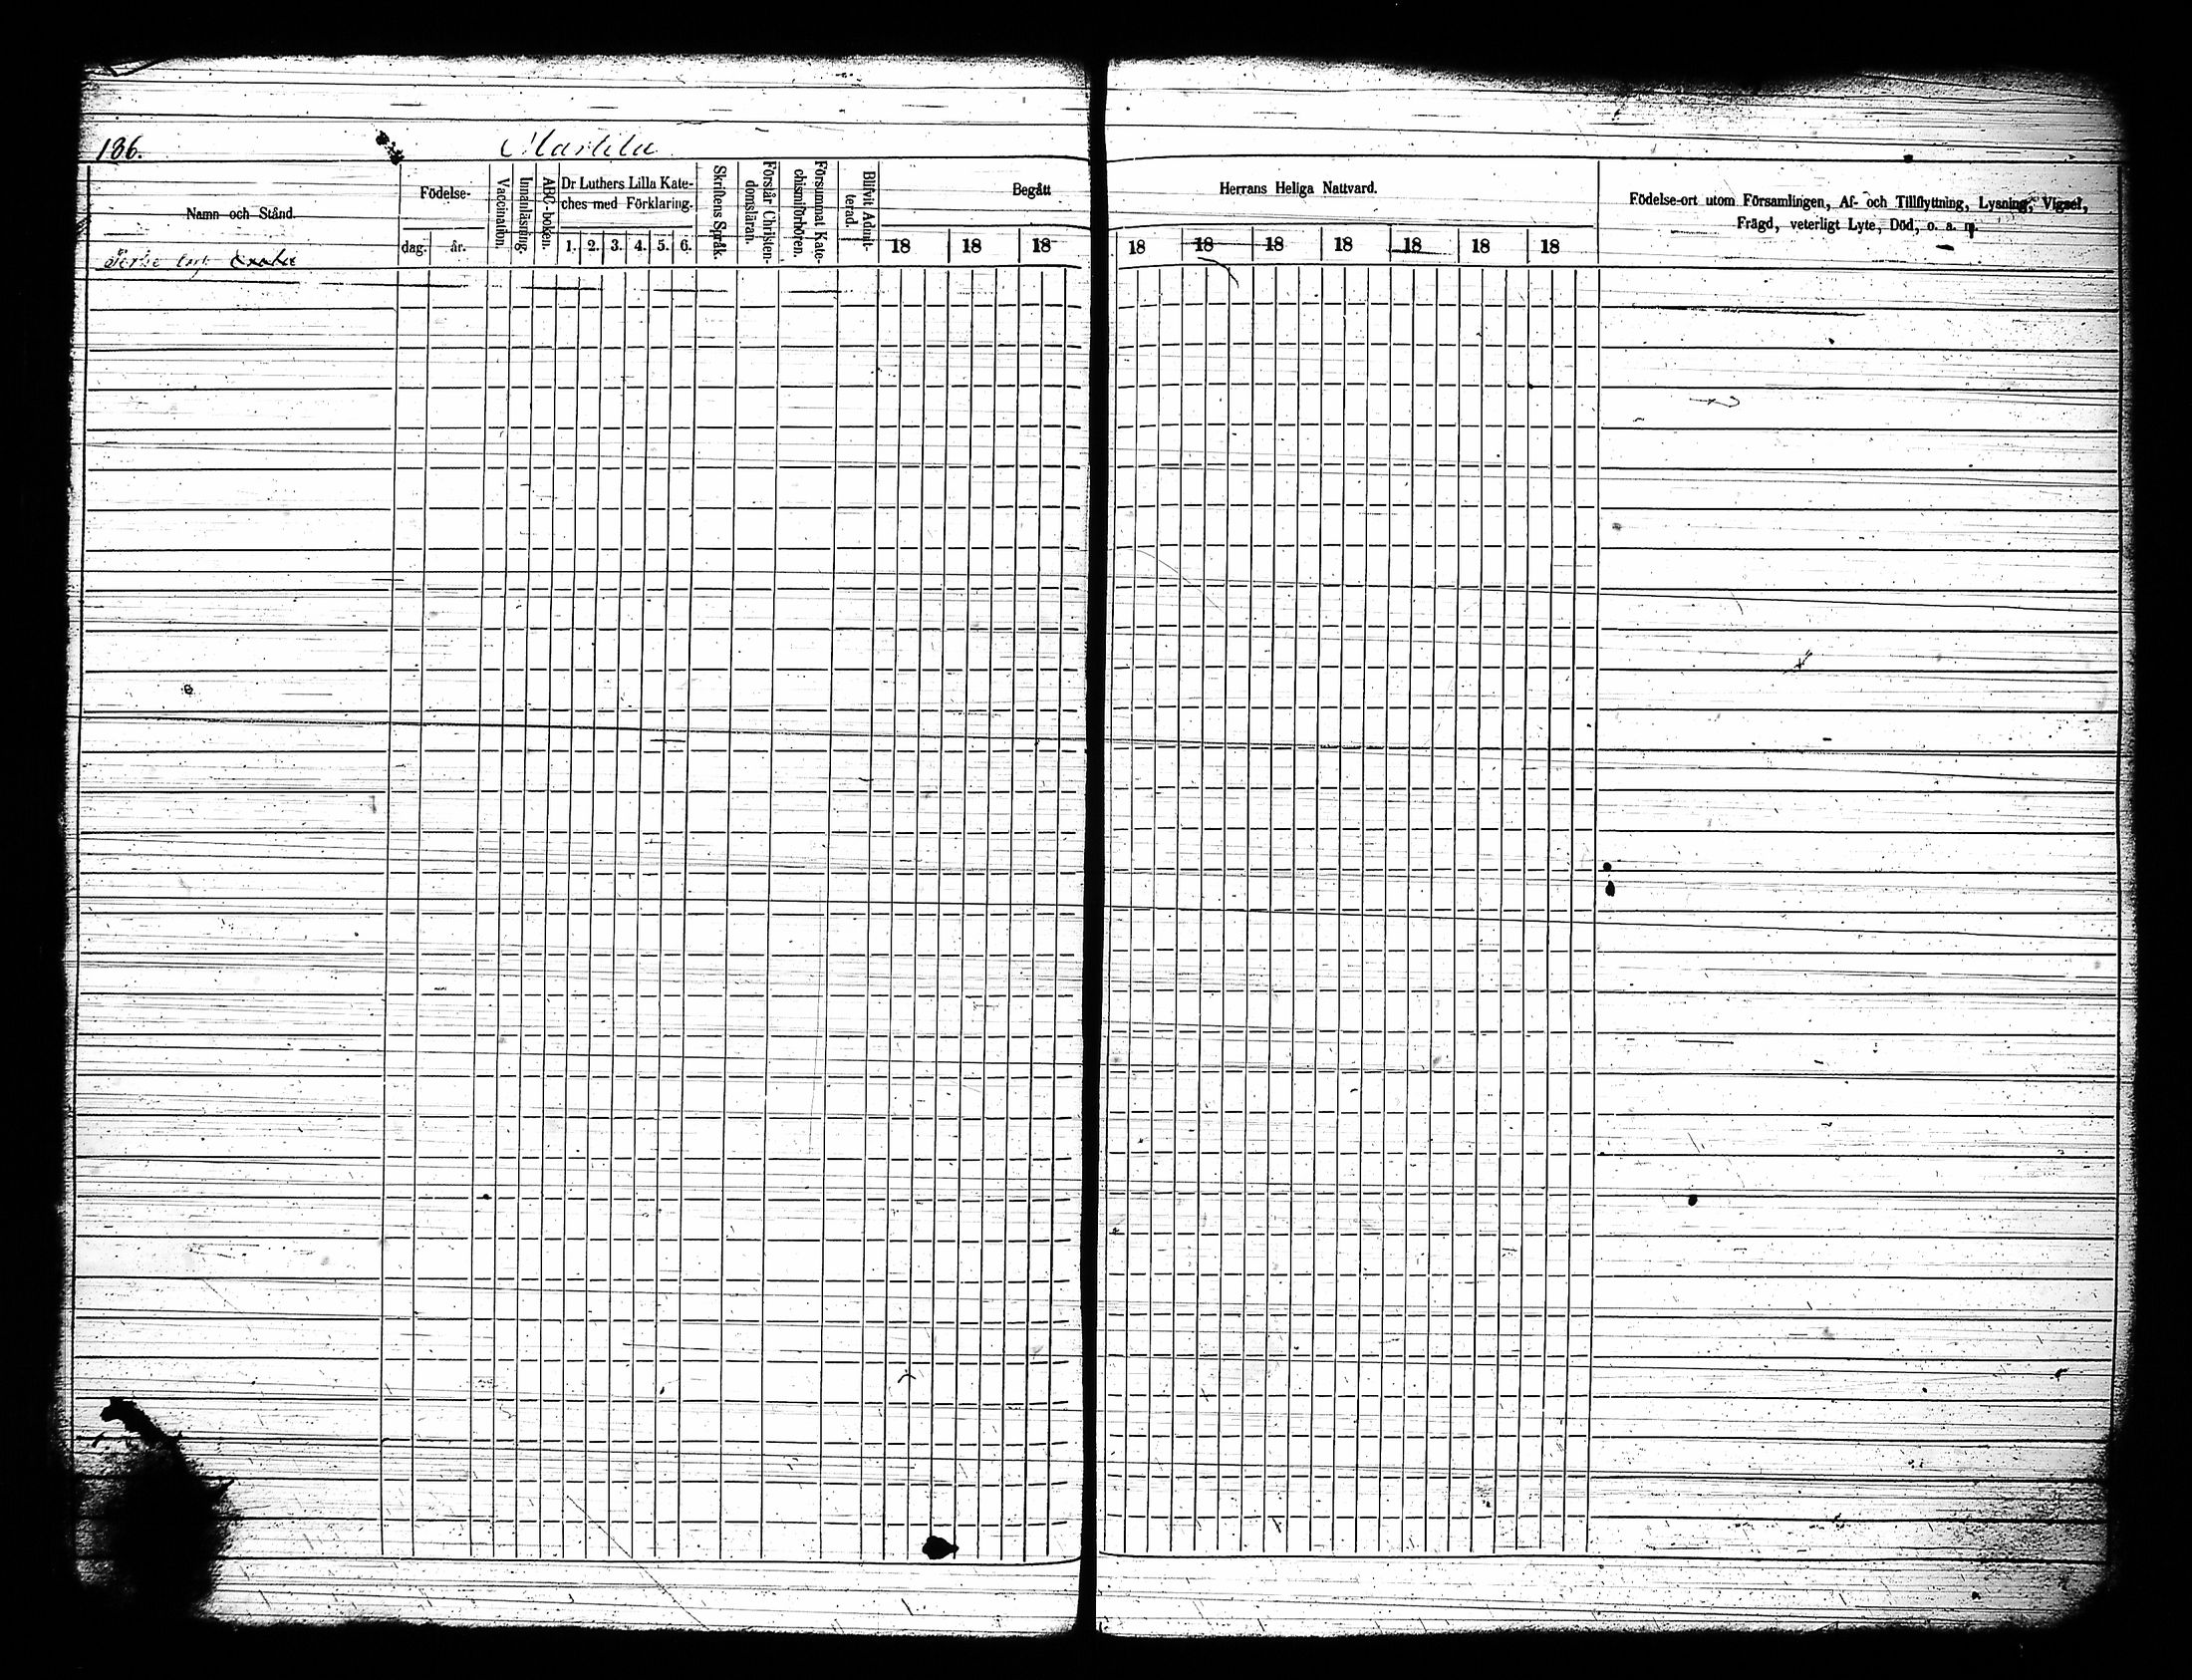 186.
Marttila
Namn och Stånd.
Födelse-
dag.
år.
Vaccination.
Innanläsning.
ABC-boken.
Dr Luthers Lilla Kate-
ches med Förklaring.
1. 2. 3. 4. 5. 6.
Skriftens Språk.
Förstår Christen-
domsläran.
Försummat Kate-
chismiförhören.
Blifvit Admit-
terad.
Begått
18 18 18
Herrans Heliga Nattvard.
18 18 18 18 18 18 18
Födelse-ort utom Församlingen, Af- och Tillflyttning, Lysning, Vigsel,
Frägd, veterligt Lyte, Död, o. a. m.